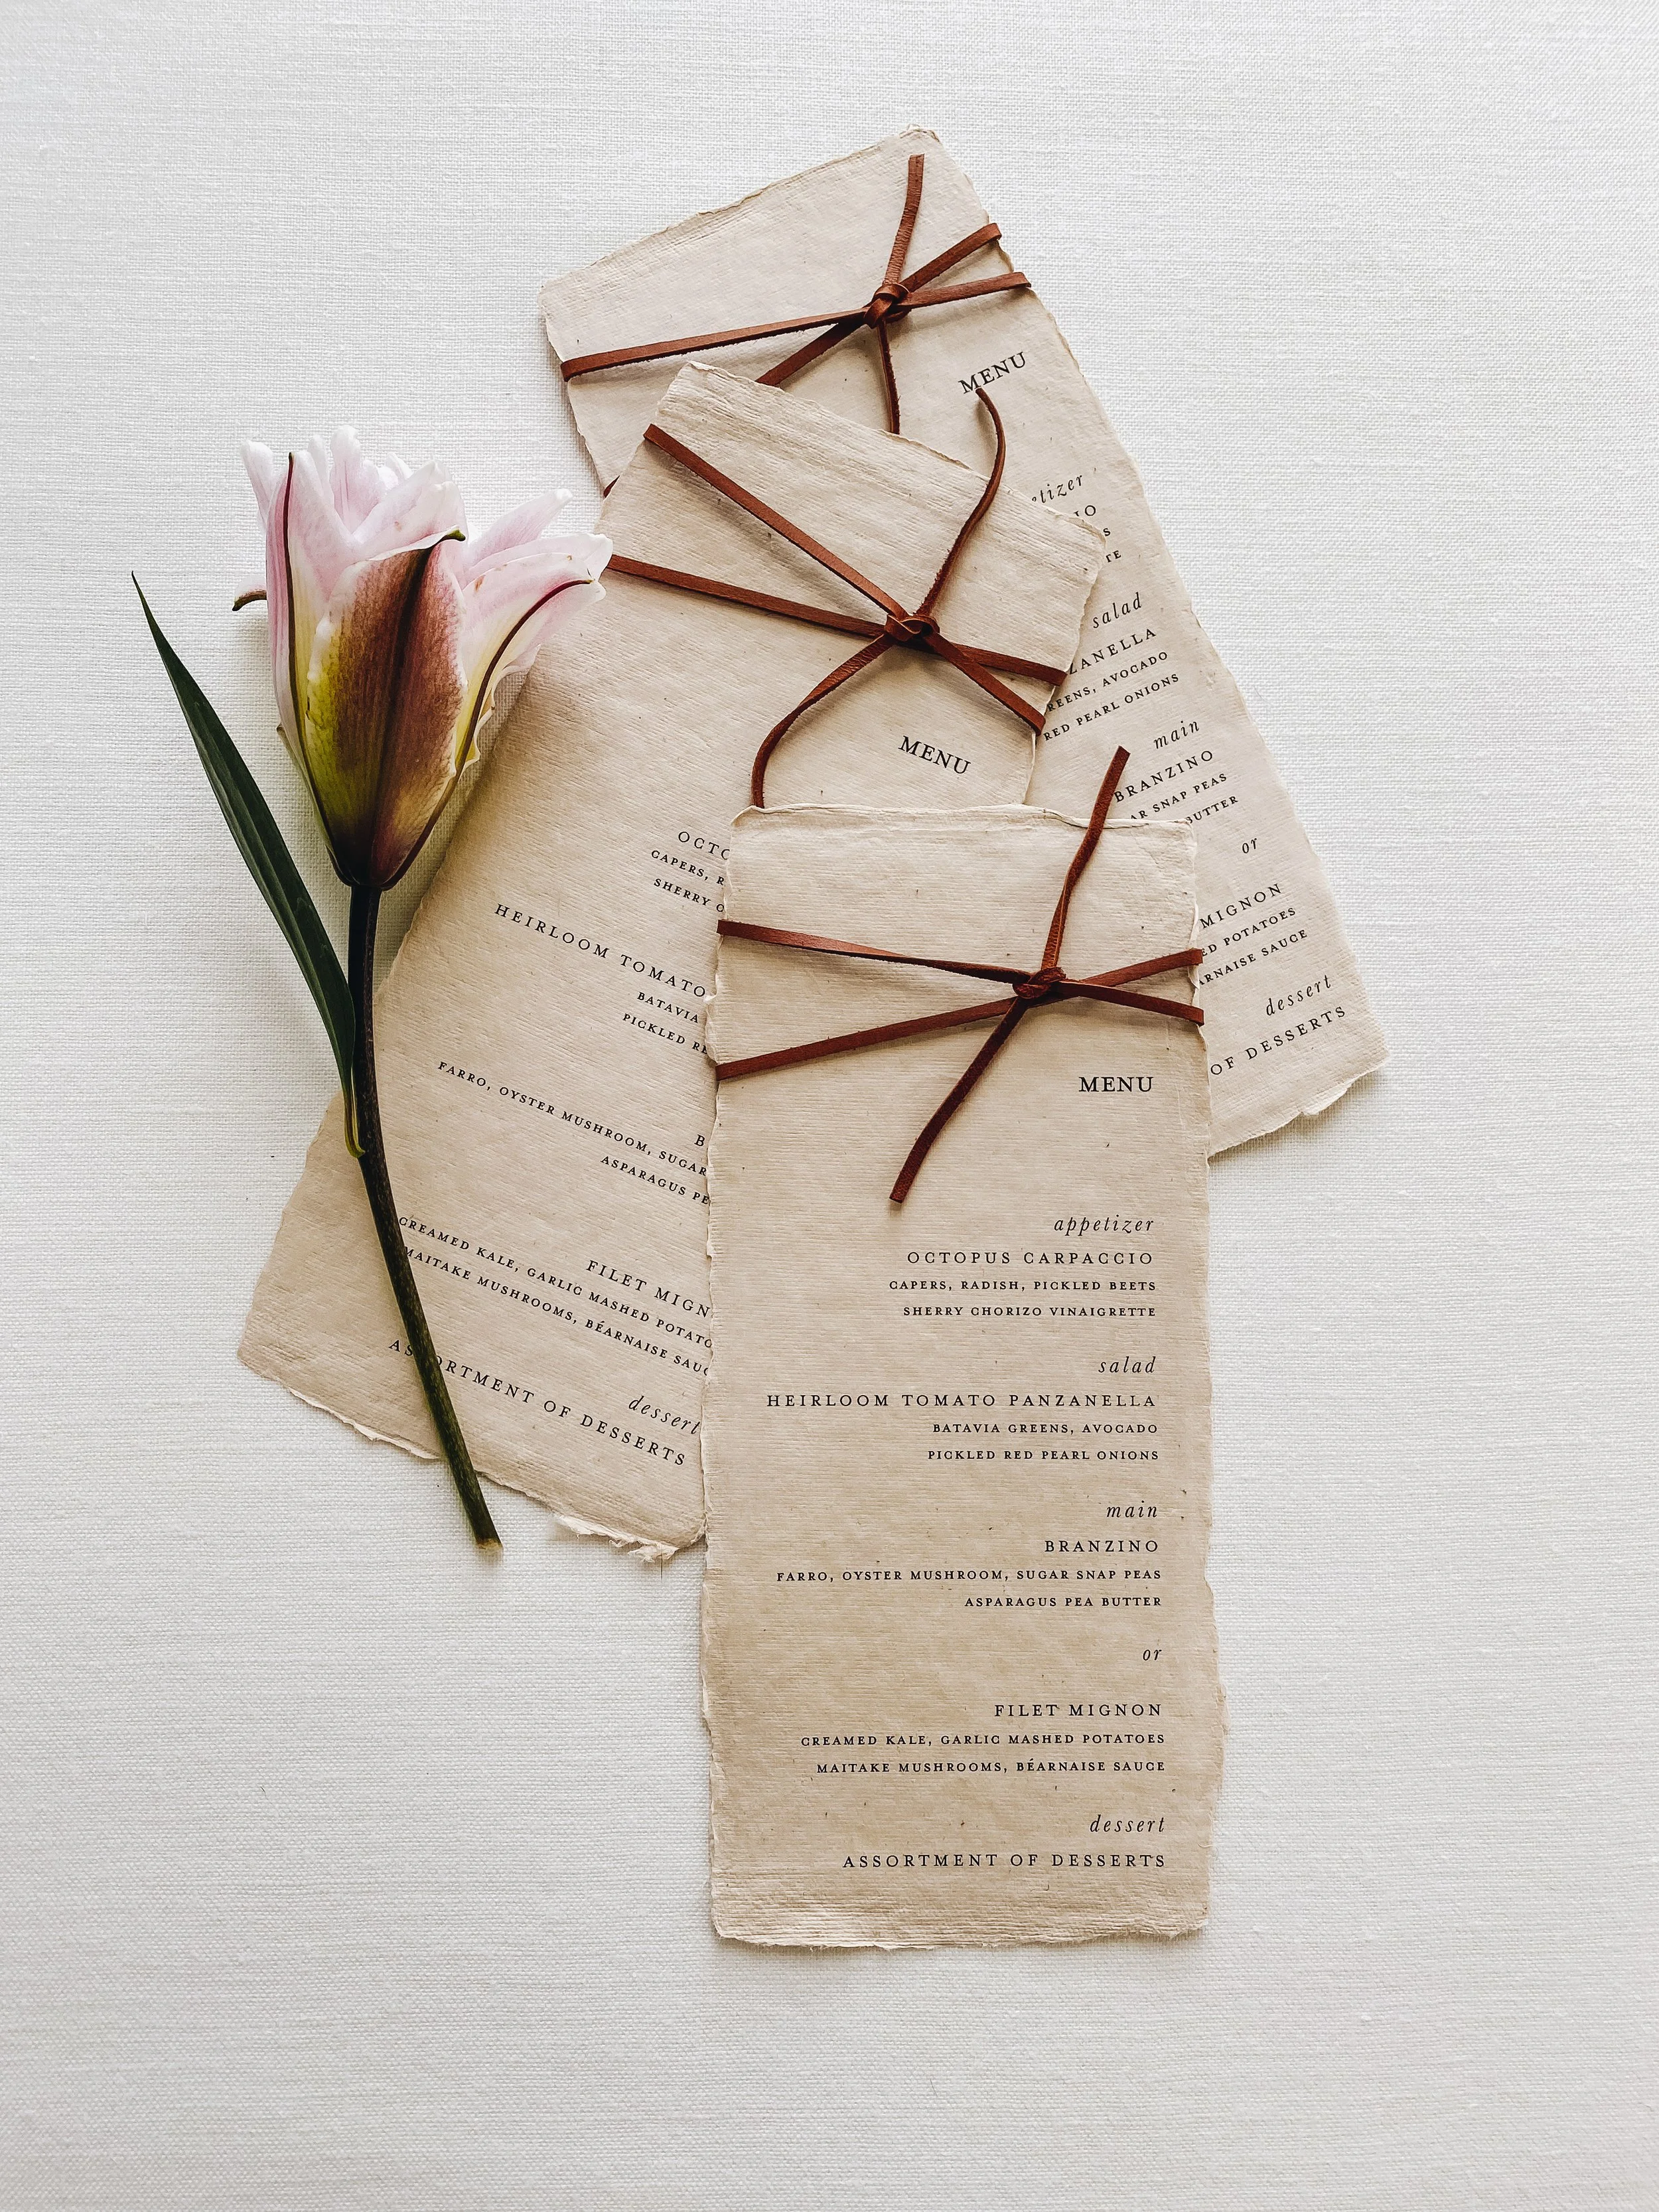 MENU
tizer
IO
S
TE
salad
ZANELLA
REENS, AVOCADO
RED PEARL ONIONS
main
BRANZINO
AR SNAP PEAS
BUTTER
or
MIGNON
ED POTATOES
ARNAISE SAUCE
dessert
OF DESSERTS
MENU
OCTO
CAPERS, R
SHERRY C
HEIRLOOM TOMATO
BATAVIA
PICKLED RE
B
FARRO, OYSTER MUSHROOM, SUGAR
ASPARAGUS PE
FILET MIGN
CREAMED KALE, GARLIC MASHED POTATO
MAITAKE MUSHROOMS, BÉARNAISE SAUC
dessert
ASSORTMENT OF DESSERTS
MENU
appetizer
OCTOPUS CARPACCIO
CAPERS, RADISH, PICKLED BEETS
SHERRY CHORIZO VINAIGRETTE
salad
HEIRLOOM TOMATO PANZANELLA
BATAVIA GREENS, AVOCADO
PICKLED RED PEARL ONIONS
main
BRANZINO
FARRO, OYSTER MUSHROOM, SUGAR SNAP PEAS
ASPARAGUS PEA BUTTER
or
FILET MIGNON
CREAMED KALE, GARLIC MASHED POTATOES
MAITAKE MUSHROOMS, BÉARNAISE SAUCE
dessert
ASSORTMENT OF DESSERTS